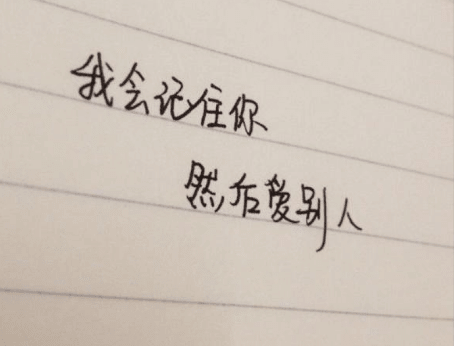 我会记住你
然后爱别人